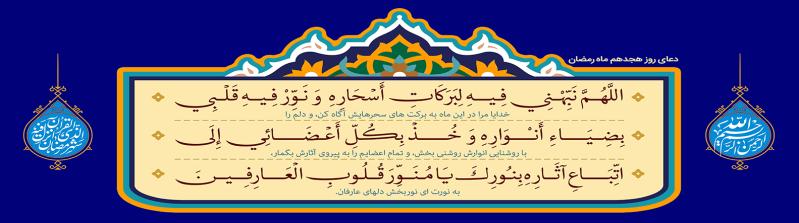 دعای روز هجدهم ماه رمضان
اللَّهُمَّ نَبِّهْنِي فِيهِ لِبَرَكَاتِ أَسْحَارِهِ وَ نَوِّرْ فِيهِ قَلْبِي
خدایا مرا در این ماه به برکت های سحرهایش آگاه کن، و دلم را
بِضِيَاءِ أَنْوَارِهِ وَ خُذْ بِكُلِّ أَعْضَائِي إِلَى
با روشنایی انوارش روشنی بخش، و تمام اعضایم را به پیروی آثارش بگمار،
اتِّبَاعِ آثَارِهِ بِنُورِكَ يَا مُنَوِّرَ قُلُوبِ الْعَارِفِينَ
به نورت ای نوربخش دلهای عارفان.
بسم الله الرحمن الرحیم